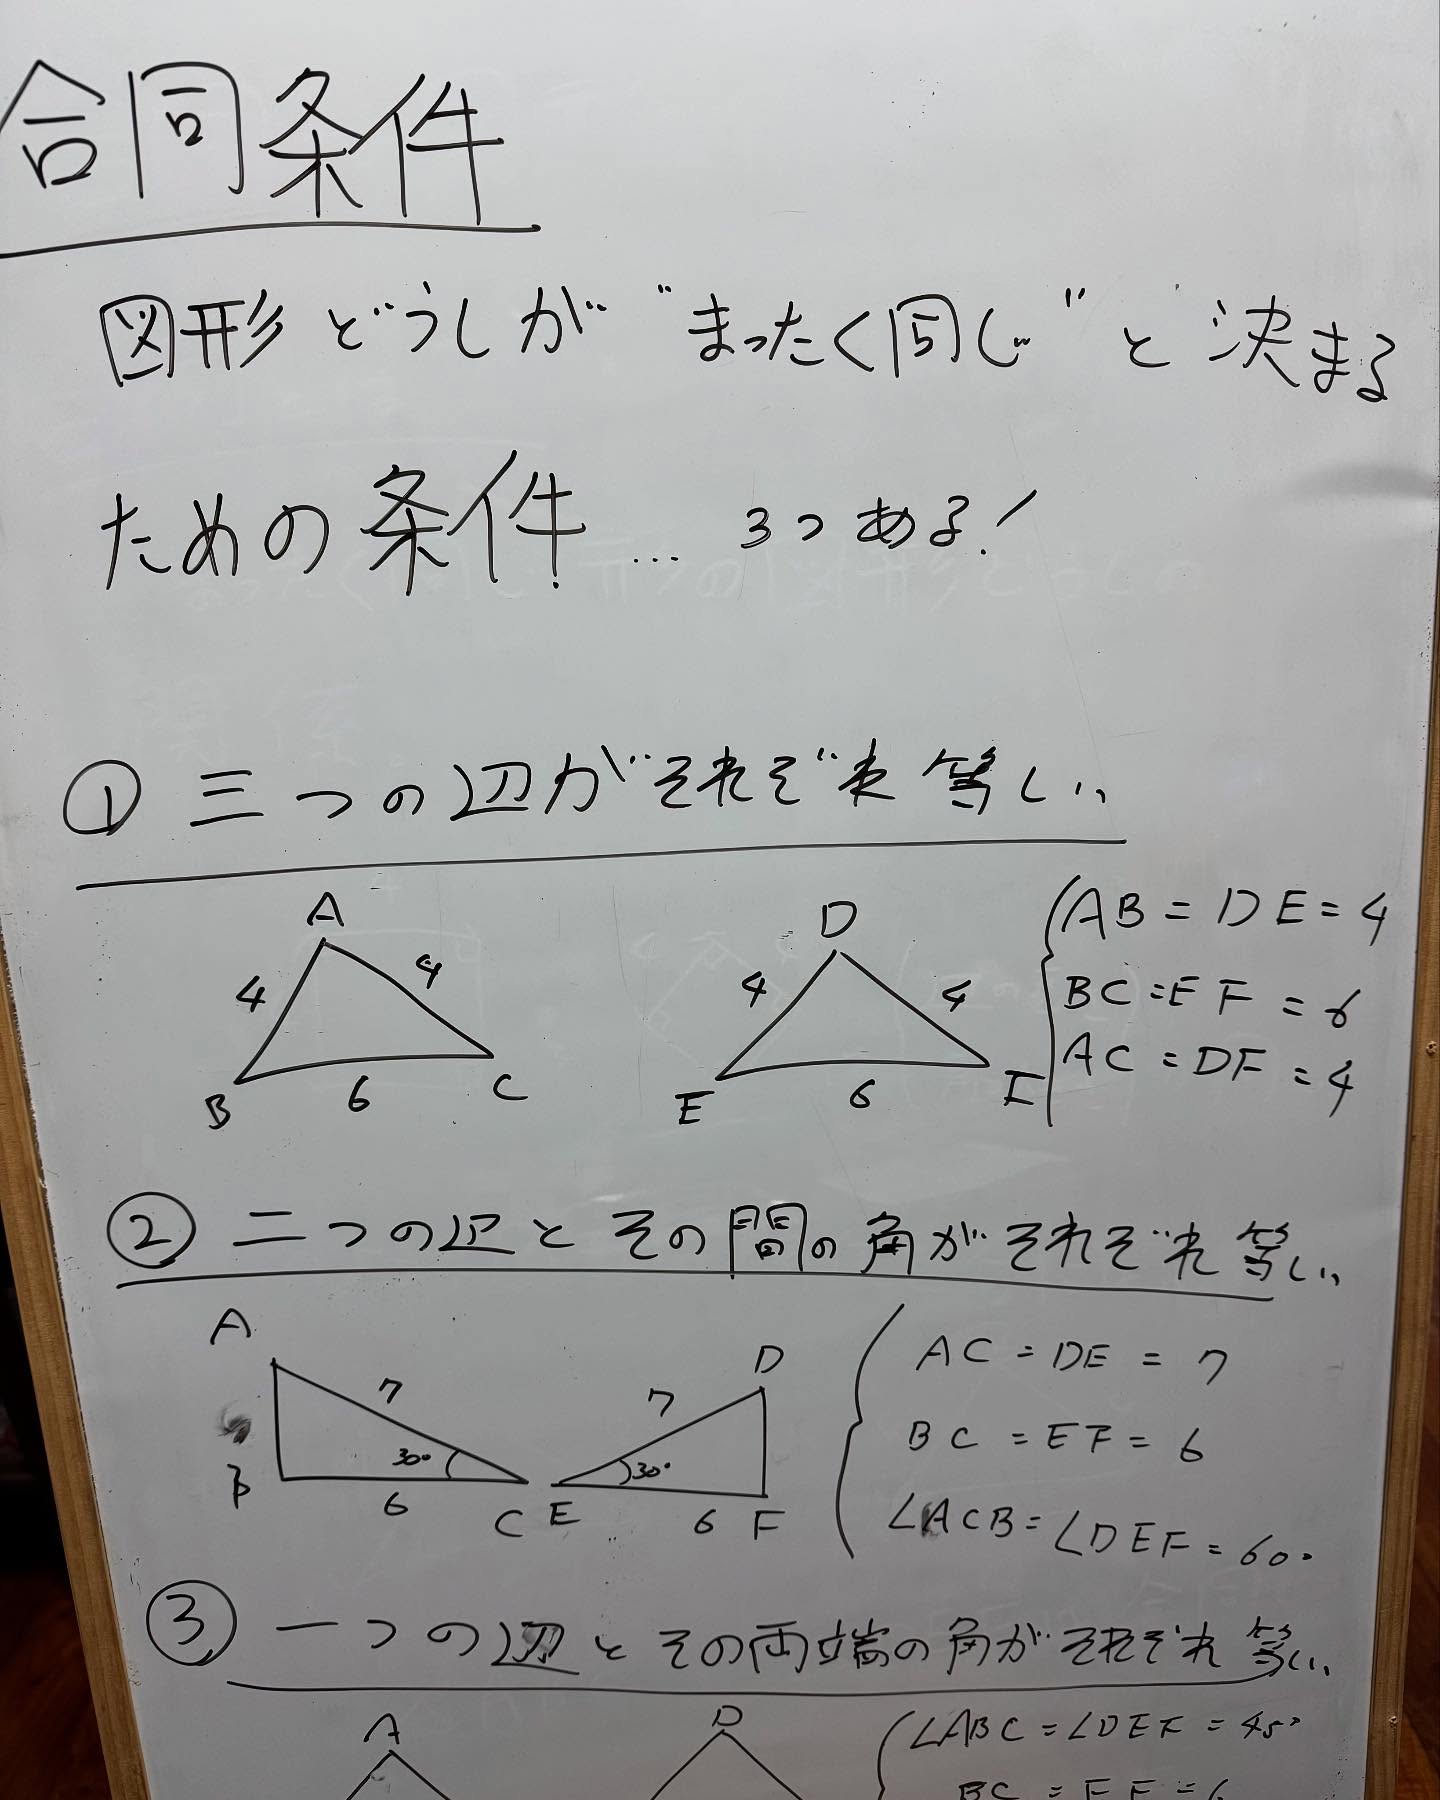 合同条件
図形どうしが"まったく同じ"と決まる
ための条件… 3つある!
① 三つの辺がそれぞれ等しい
A
4
4
B
6
C
D
4
4
E
6
F
AB = DE = 4
BC = EF = 6
AC = DF = 4
② 二つの辺とその間の角がそれぞれ等しい
A
7
30°
B
6
C
D
7
30°
E
6
F
AC = DE = 7
BC = EF = 6
∠ACB = ∠DEF = 60°
③ 一つの辺とその両端の角がそれぞれ等しい
A
D
∠ABC = ∠DEF = 45°
BC = EF = 6